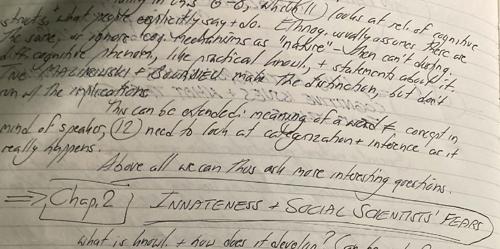 in this G-O, which (11) looks at rel. of cognitive
structs, + what people explicitly say + do. Ethnog. usually assumes these are
the same; or ignores cog. mechanisms as "nature"- then can't disting.
diff. cognitive phenom, like practical knowl, + statements about it.
MALINOWSKI + BOURDIEU make the distinction, but don't
run all the implications.
This can be extended: meaning of a word ≠ concept in
mind of speaker, (12) need to look at categorization + inference as it
really happens.
Above all we can thus ask more interesting questions.
⇒ Chap. 2 INNATENESS + SOCIAL SCIENTISTS' FEARS
what is knowl. + how does it develop?